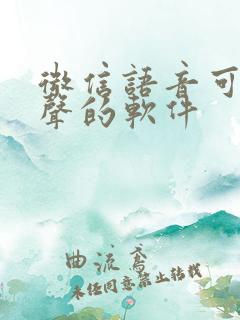 微信語音可
聲的軟件
曲流鳶
未经同意禁止转载